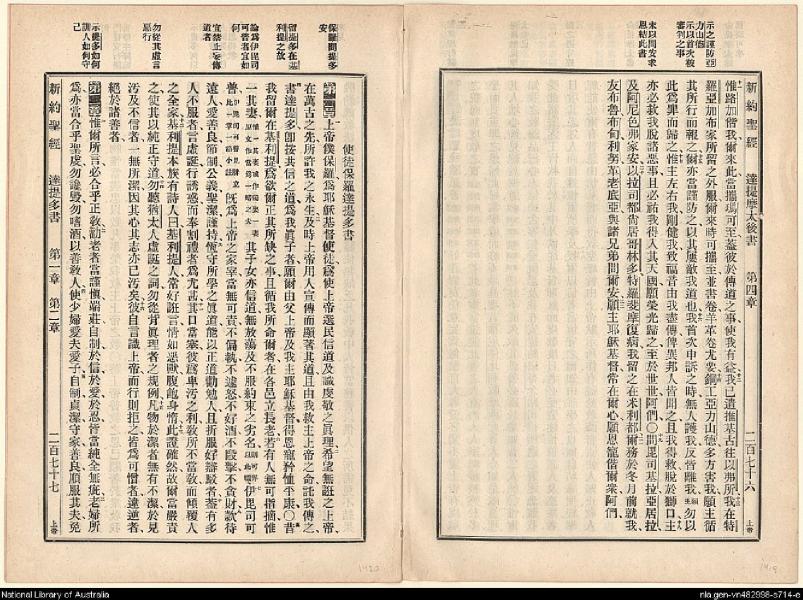 新約聖經 達提摩太後書 第四章 二百七十六 上帝
示之謹防亞
力山德
示以首次被
審判之事
末以問安求
恩結此書
惟路加偕我爾來此當攜瑪可至蓋彼於傳道之事使我有益我已遣推基古往以弗所我在特
羅亞加布家所留之外服爾來時可攜至並書卷羊革卷尤要銅工亞力山德多方害我願主循
其所行而報之爾亦當謹防之以其屢敵我道也我首次申訴之時無人護我反皆離我願勿以
此為罪而歸之惟主左右我剛健我致福音由我盡傳俾異邦人皆聞之且我得救脫於獅口主
亦必救我脫諸惡事且必祐我得入其天國願榮光歸之至於世世阿們〇問畢司基拉亞居拉
及阿尼色弗家安以拉司都尚居哥林多特羅斐摩復病我留之在米利都爾務於冬月前就我
友布魯布甸利努革老底亞與諸兄弟問爾安願主耶穌基督常在爾心願恩寵偕爾衆阿們
保羅問提多
安
留提多在基
利提之故
論為伊毘司
可普者宜如
何
宜禁止妄傳
道者
勿從其虛言
惡行
示提多如何
訓人如何守
己
使徒保羅達提多書
第一章上帝僕保羅為耶穌基督使徒為使上帝選民信道及識虔敬之眞理希望無誑之上帝
在萬古之先所許我之永生及時上帝用人宣傳而顯著其道且由我救主上帝之命託我傳之
書達提多卽按共信之道為我眞子者願爾由父上帝及我主耶穌基督得恩寵矜恤平康〇昔
我留爾在基利提為欲爾正其所缺之事且循我所命爾者在各邑立長老若有人無可指摘惟
一其妻 其子女亦信道無放蕩及不服約束之劣名 伊毘司可
普 旣為上帝之家宰當無可責不偏執不遽怒不好酒不毆擊不貪財款待
遠人愛善良節制公義聖潔謹持恆守所學之眞道能以正道勸勉人且折服好辯駁者蓋有多
人不服者言虛誕行誘惑而奉割禮者為尤甚其口當塞彼為卑污之利教所不當教而傾覆人
之全家基利提本族有詩人曰基利提人常好誑言情如惡獸腹飽身惰此證確然故爾當嚴責
之使其以純正守道勿聽猶太人虛誕之詞勿從背眞理者之規例凡物於潔者無有不潔於見
污及不信者一無所潔因其心其志亦已污矣彼自言識上帝而行則拒之皆為可憎者違逆者
絕於諸善者
第二章惟爾所言必合乎正教勸老者當謹愼端莊自制於信於愛於忍皆當純全無疵老婦所
為亦當合乎聖度勿讒毀勿嗜酒以善教人使少婦愛夫愛子自制貞潔守家善良順服其夫免
新約聖經 達提多書 第一章 第二章 二百七十七 上帝
National Library of Australia
nla.gen-vn482998-s714-e